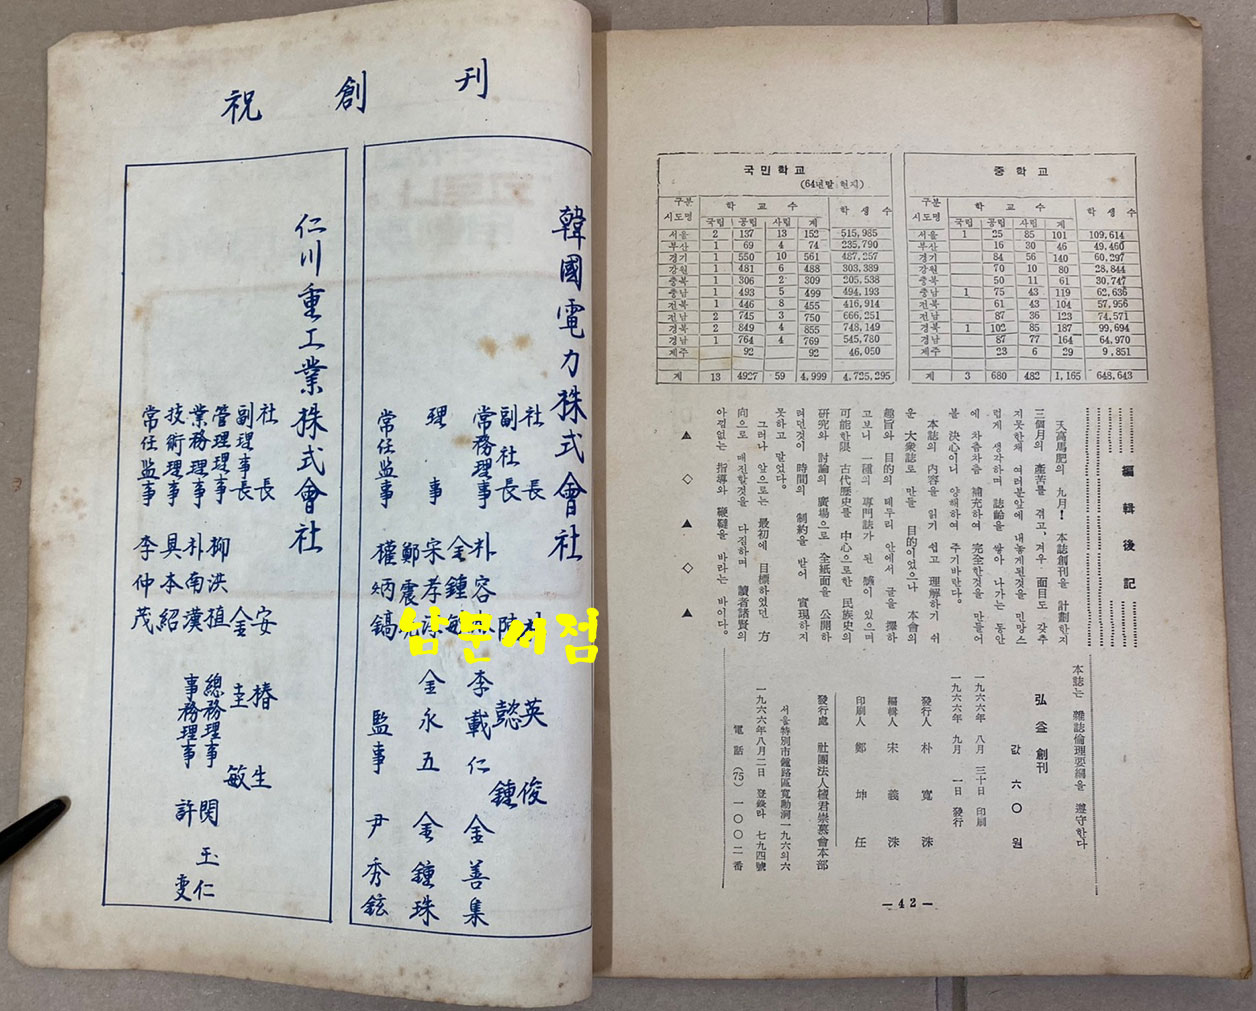 祝 創 刊
韓國電力株式會社
社長 英俊
副社長 陳懿鍾
常務理事 朴容 李載仁 金善集
金鍾敏
理事 宋孝 金永五 金鍾珠
鄭震
常任監事 權炳鎬 監事 尹秀鉉
仁川重工業株式會社
社長 安椿生
副理事長 金圭敏
管理理事 柳洪植 總務理事 閔玉仁
業務理事 朴南漢 事務理事 許雯
技術理事 具本紹
常任監事 李仲茂
남문서점
국민학교
(64년말 현지)
구분 시도명 학교수 학생수
국립 공립 사립 계
서울 2 137 13 152 515,985
부산 1 69 4 74 235,790
경기 1 550 10 561 487,257
강원 1 481 6 488 303,389
충북 1 306 2 309 205,538
충남 1 493 5 499 494,193
전북 1 446 8 455 416,914
전남 2 745 3 750 666,251
경북 2 849 4 855 748,149
경남 1 764 4 769 545,780
제주 92 92 46,050
계 13 4927 59 4,999 4,725,295
중학교
구분 시도명 학교수 학생수
국립 공립 사립 계
서울 1 25 85 101 109,614
부산 16 30 46 49,460
경기 84 56 140 60,297
강원 70 10 80 28,844
충북 50 11 61 30,747
충남 1 75 43 119 62,636
전북 61 43 104 57,956
전남 87 36 123 74,571
경북 1 102 85 187 99,694
경남 87 77 164 64,970
제주 23 6 29 9,851
계 3 680 482 1,165 648,643
編輯後記
天高馬肥의 九月! 本誌創刊을 計劃한지
三個月의 產苦를 겪고, 겨우 面目도 갖추
지못한채 여러분앞에 내놓게된것을 민망스
럽게 생각하며 誌齡을 쌓아 나가는 동안
에 차츰차츰 補充하여 完全한것을 만들어
볼 決心이니 양해하여 주기바란다.
本誌의 内容을 읽기 쉽고 理解하기 쉬
운 大衆誌로 만들 目的이었으나 本會의
趣旨와 目的의 테두리 안에서 글을 擇하
고보니 一種의 專門誌가 된 感이 있으며
可能한限 古代歷史를 中心으로한 民族史의
研究와 討論의 廣場으로 全紙面을 公開하
려던것이 時間의 制約을 받어 實現하지
못하고 말었다.
그러나 앞으로는 最初에 目標하였던 方
向으로 매진할것을 다짐하며 讀者諸賢의
아낌없는 指導와 鞭韃을 바라는 바이다.
▲ ◇ ▲ ◇ ▲
本誌는 雜誌倫理要綱을 遵守한다
弘益 創刊 값 六〇원
一九六六年 八月 三十日 印刷
一九六六年 九月 一日 發行
發行人 朴寬洙
編輯人 宋義洙
印刷人 鄭坤任
發行處 社團法人檀君崇慕會本部
서울特別市鍾路區寬勳洞一九六의六
一九六六年八月二日 登錄라 七九四號
電話 (75) 一〇〇二番
—42—